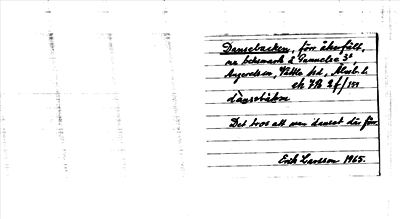 Dansebacken, förr åkerfält,
nu betesmark å Gunnelse 3²,
Angereds sn, Vättle hd, Älvsb. l.
ek 7B 2f/151
dànsebàkən
Det tros att man dansat där förr.
Erik Larsson 1965.